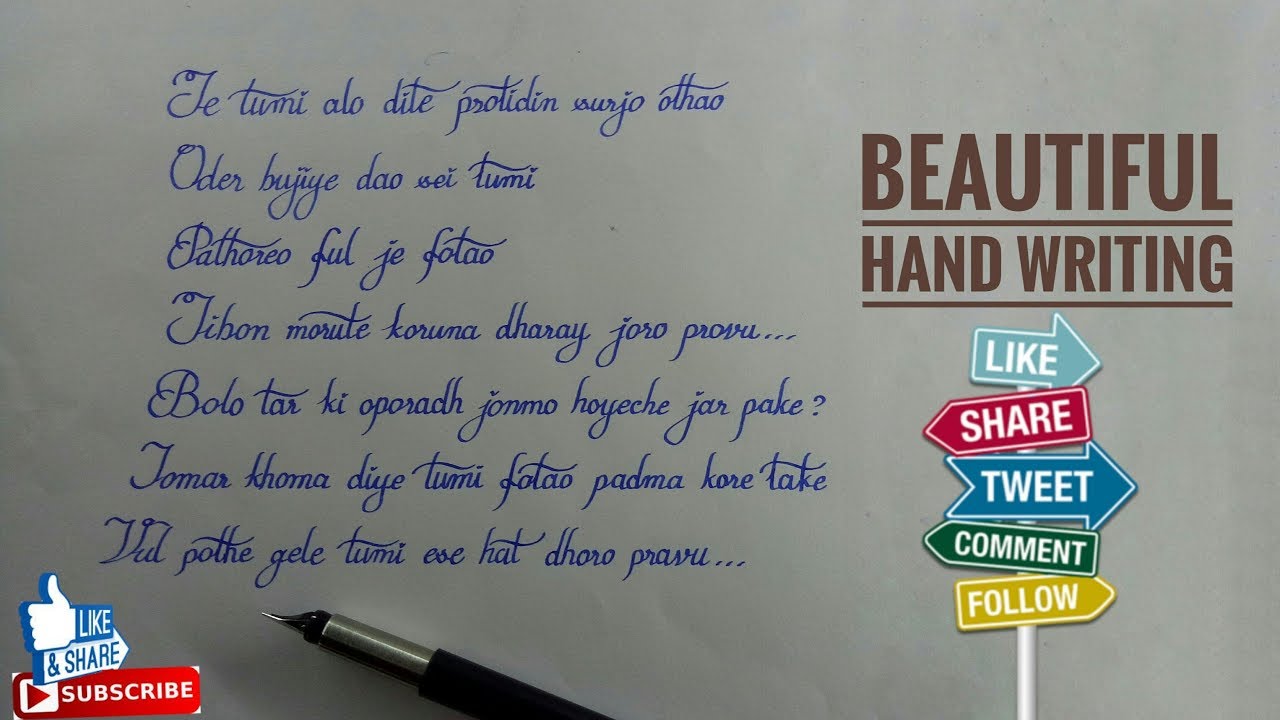 Je tumi alo dite protidin surjo othao
Oder bujiye dao sei tumi
Pathoreo ful je fotao
Jibon morute koruna dharay joro provu...
Bolo tar ki oporadh jonmo hoyeche jar pake?
Tomar khoma diye tumi fotao padma kore take
Vul pothe gele tumi ese hat dhoro pravu...
BEAUTIFUL
HAND WRITING
LIKE
SHARE
TWEET
COMMENT
FOLLOW
LIKE
& SHARE
SUBSCRIBE